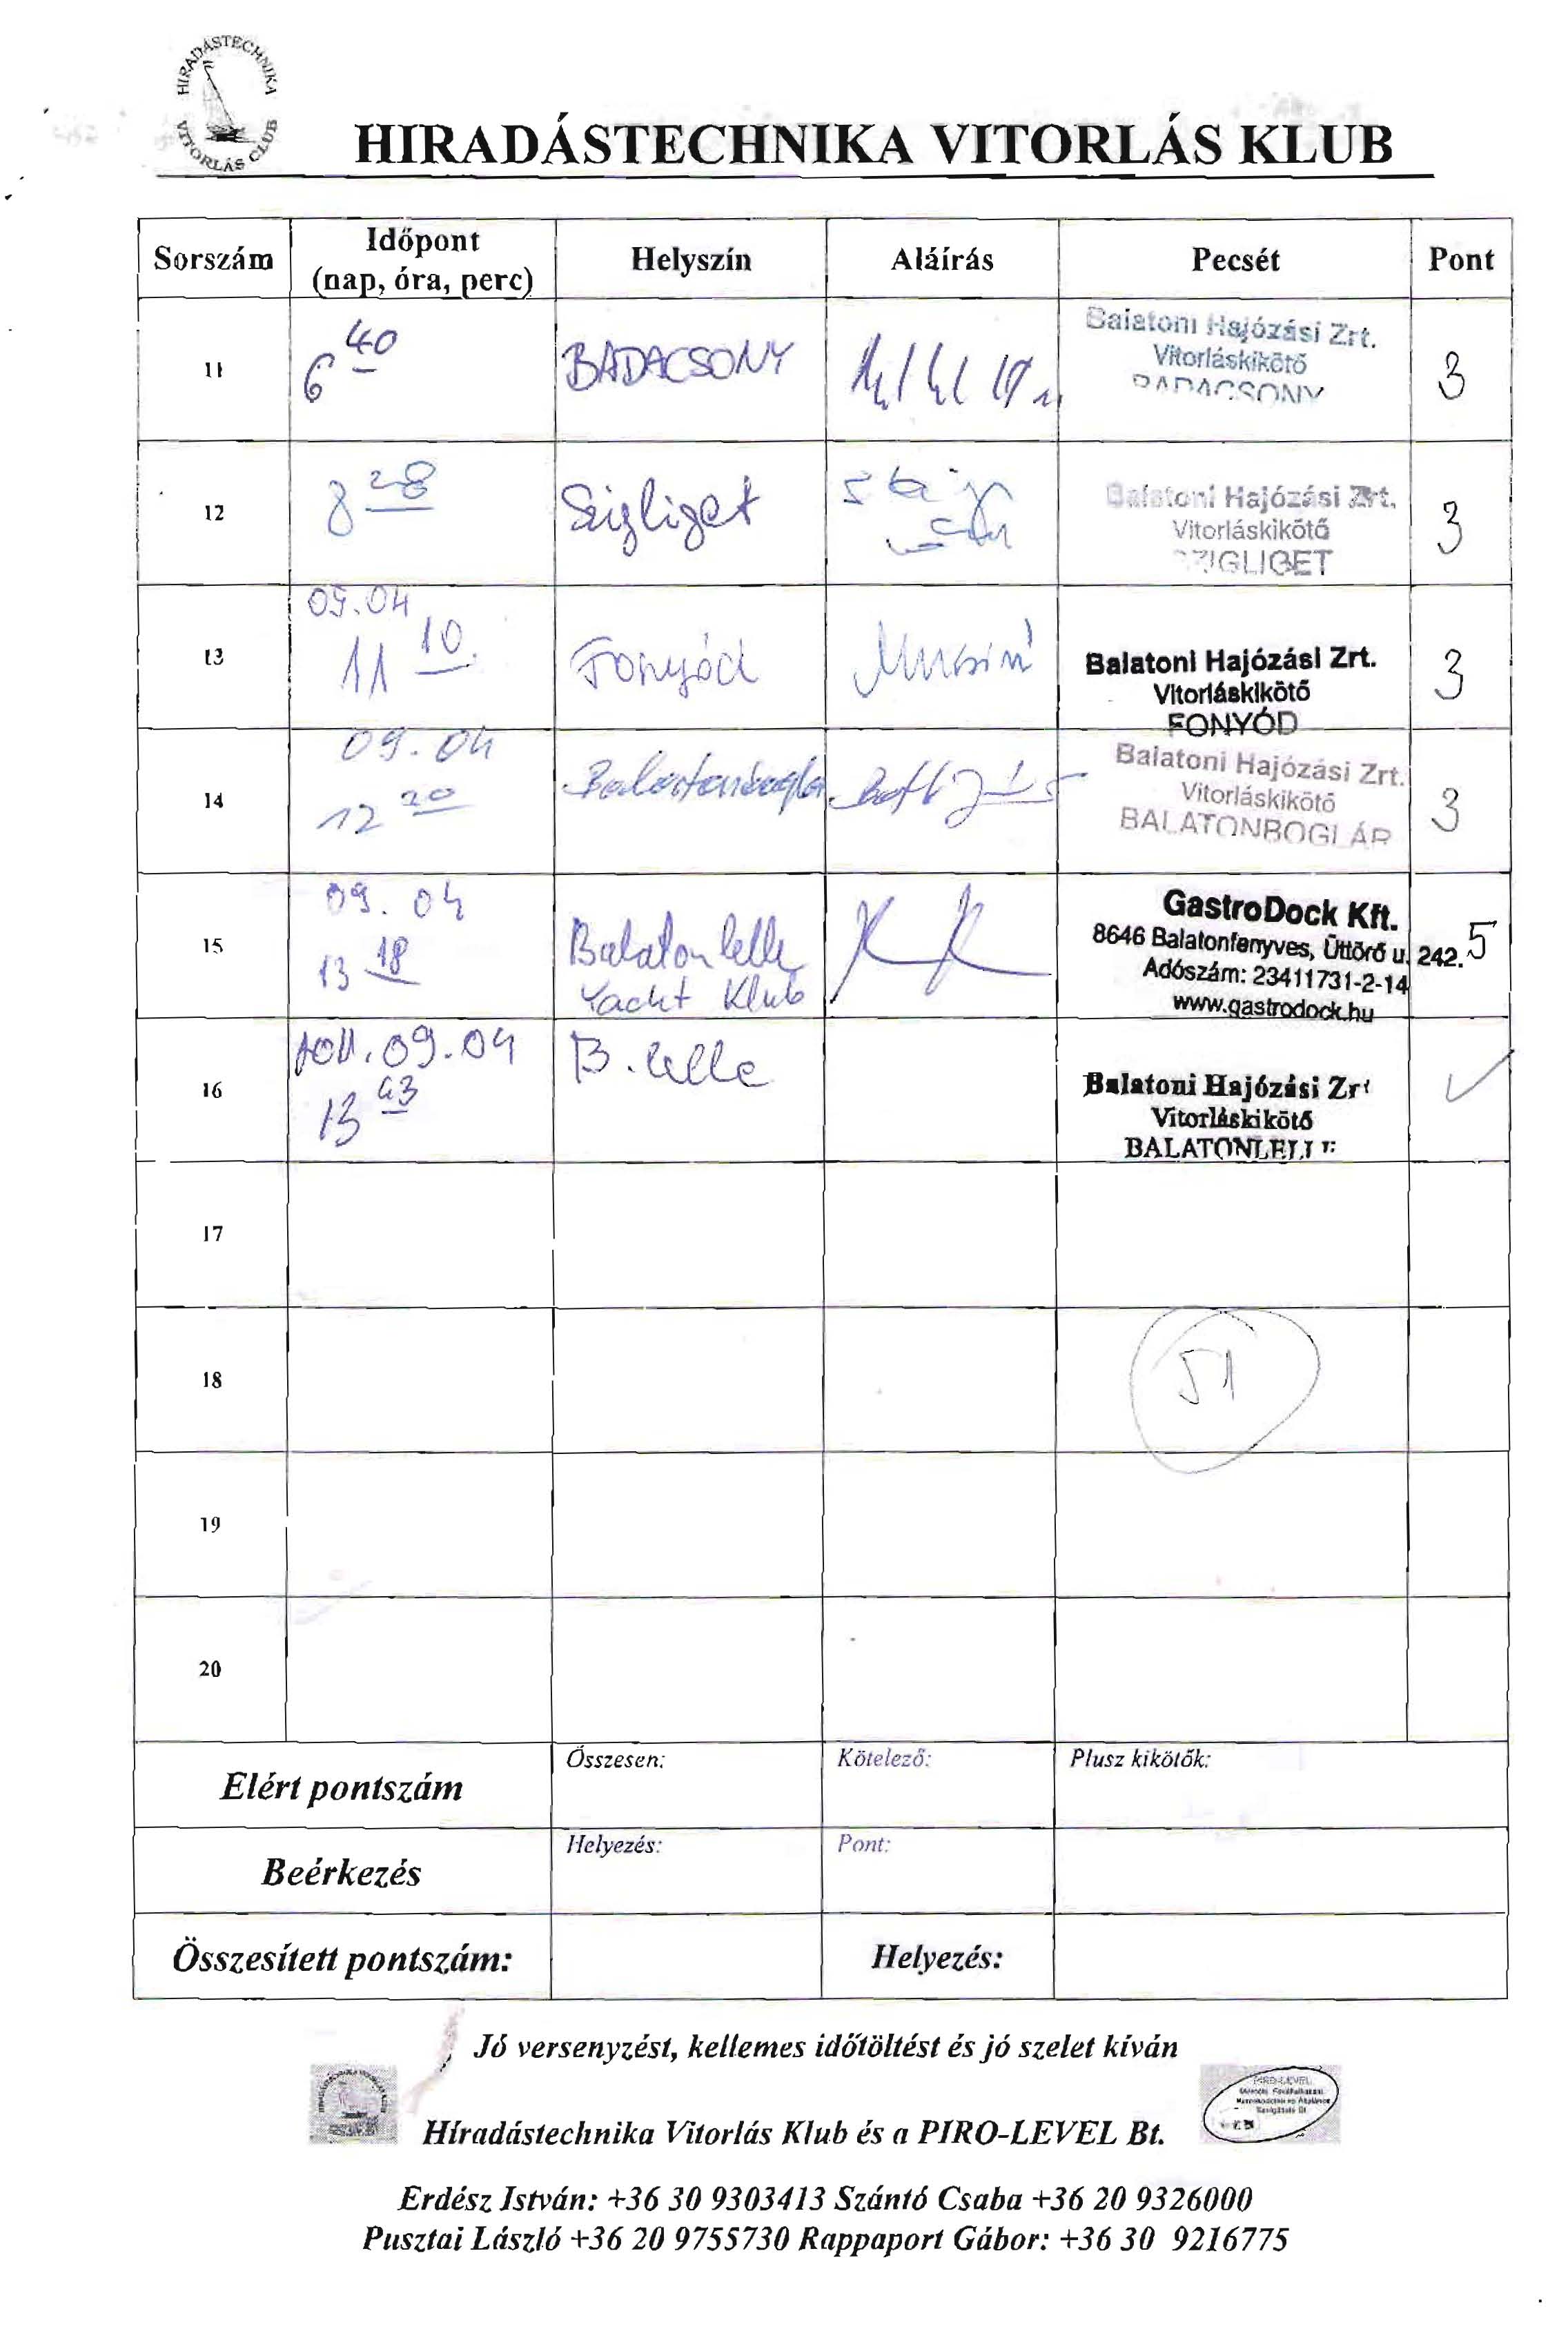 HIRADÁSTECHNIKA
VITORLÁS CLUB
HIRADÁSTECHNIKA VITORLÁS KLUB
Sorszám Időpont (nap, óra, perc) Helyszín Aláírás Pecsét Pont
11 6 40 BADACSONY 3
Balatoni Hajózási Zrt.
Vitorláskikötő
BADACSONY
12 8 28 Szigliget 3
Balatoni Hajózási Zrt.
Vitorláskikötő
SZIGLIGET
09.04
13 11 10. Fonyód 3
Balatoni Hajózási Zrt.
Vitorláskikötő
FONYÓD
09.04
14 12 20 Balatonboglár 3
Balatoni Hajózási Zrt.
Vitorláskikötő
BALATONBOGLÁR
09.04
15 13 18 Balatonlelle Yacht Klub 5
GastroDock Kft.
8646 Balatonfenyves, Úttörő u. 242.
Adószám: 23411731-2-14
www.gastrodock.hu
2011.09.04
16 13 43 B.lelle
Balatoni Hajózási Zrt
Vitorláskikötő
BALATONLELLE
17
18 51
19
20
Elért pontszám Összesen: Kötelező: Plusz kikötők:
Beérkezés Helyezés: Pont:
Összesített pontszám: Helyezés:
Jó versenyzést, kellemes időtöltést és jó szelet kíván
PIRO-LEVEL
Híradástechnika Vitorlás Klub és a PIRO-LEVEL Bt.
Erdész István: +36 30 9303413 Szántó Csaba +36 20 9326000
Pusztai László +36 20 9755730 Rappaport Gábor: +36 30 9216775